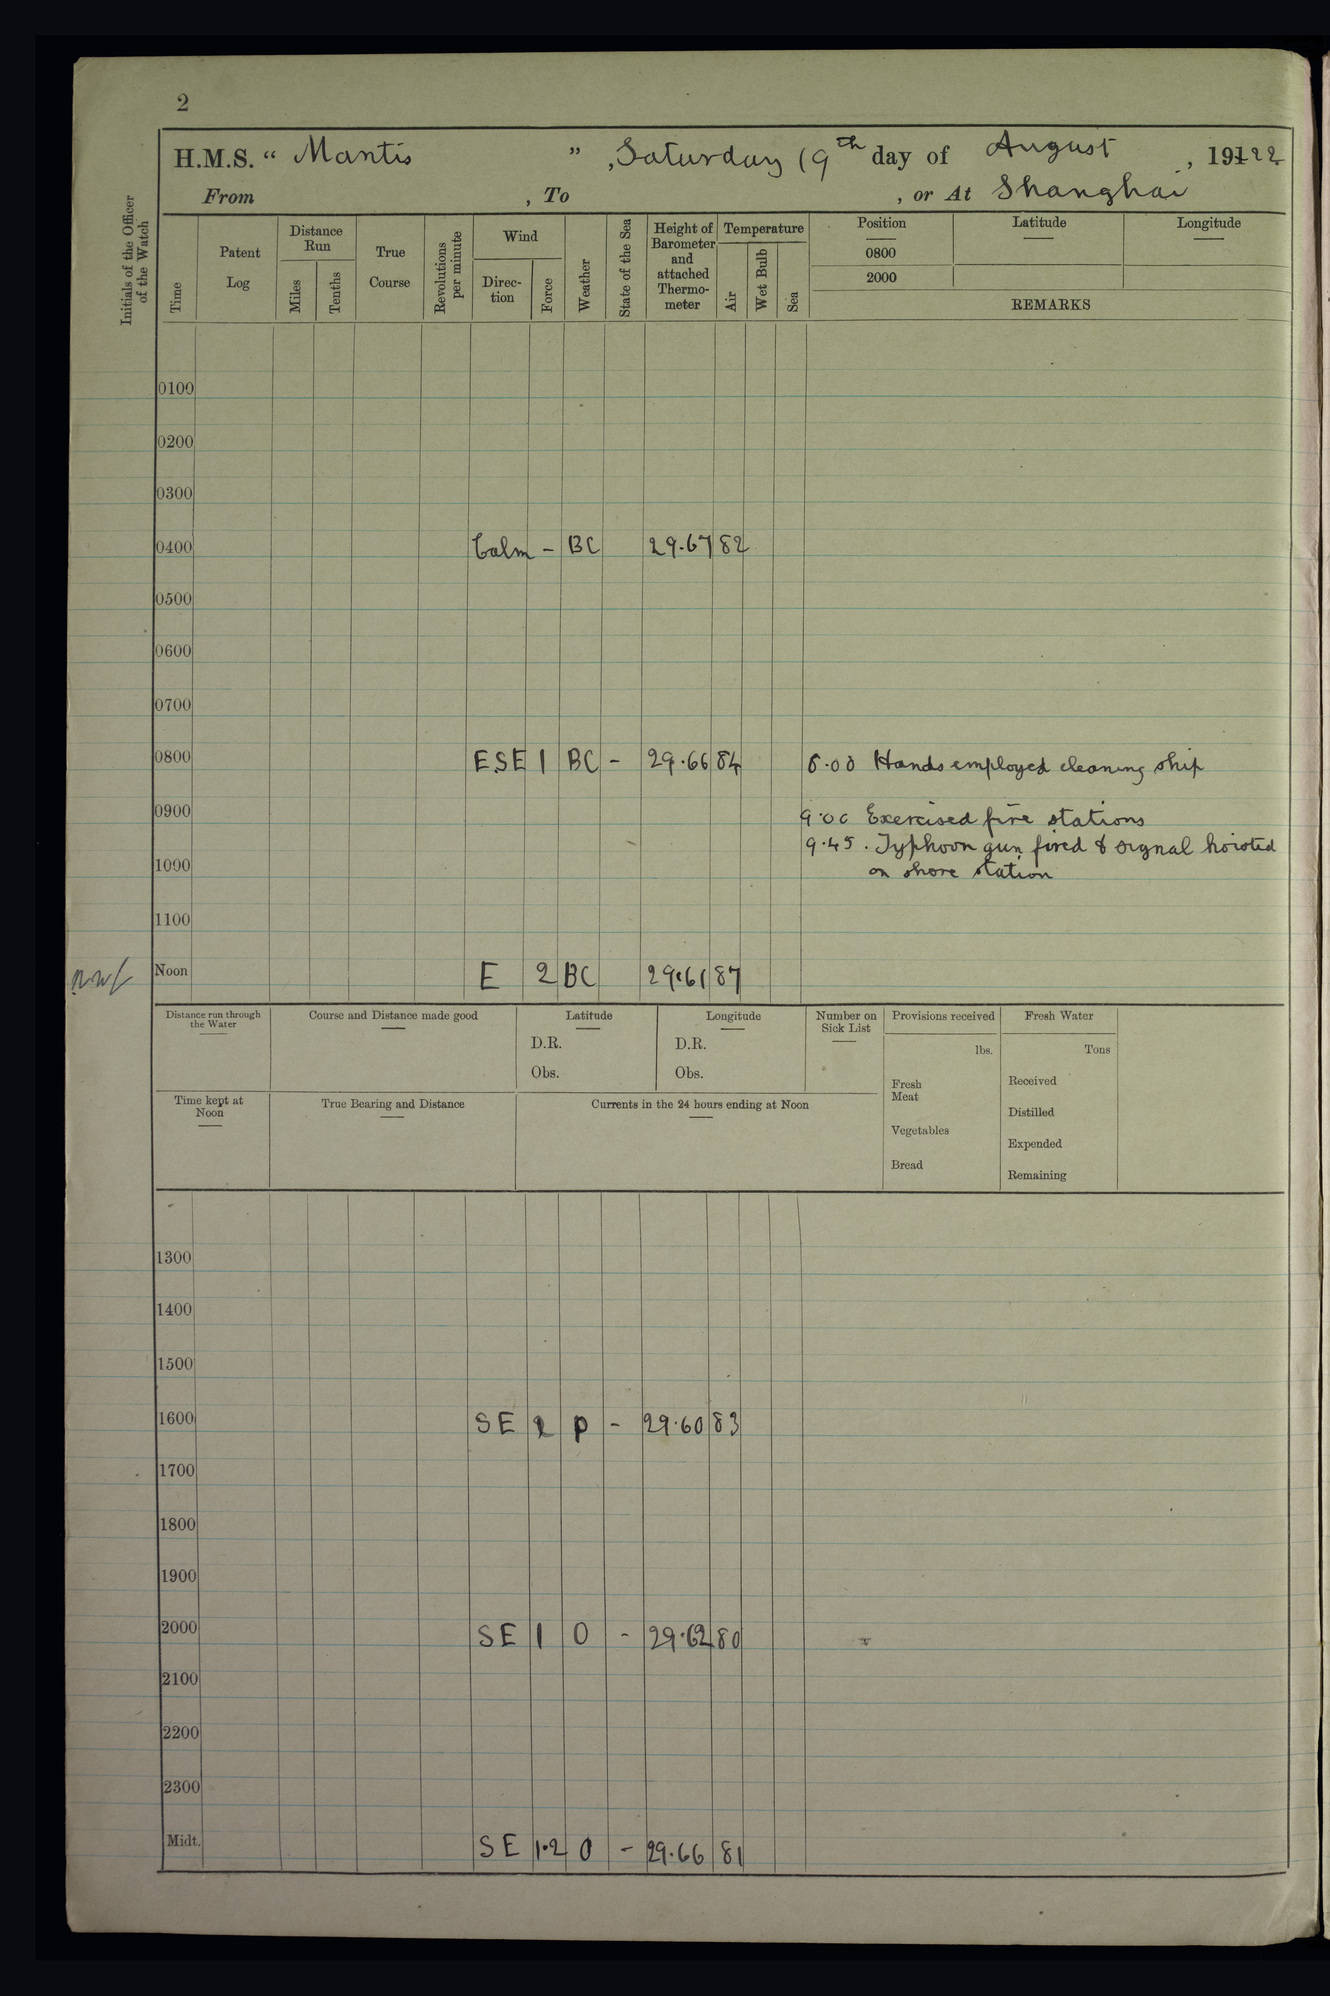 2
H.M.S. “ Mantis ” , Saturday 19th day of August , 1922
From , To , or At Shanghai
Initials of the Officer of the Watch
Time
Patent Log
Distance Run
Miles
Tenths
True Course
Revolutions per minute
Wind
Direc-tion
Force
Weather
State of the Sea
Height of Barometer and attached Thermo-meter
Temperature
Air
Wet Bulb
Sea
Position
0800
2000
Latitude
Longitude
REMARKS
0100
0200
0300
0400 Calm - BC 29.67 82
0500
0600
0700
0800 ESE 1 BC - 29.66 84 8.00 Hands employed cleaning ship
0900 9.00 Exercised fire stations
9.45. Typhoon gun fired & signal hoisted
1000 on shore station
1100
Noon E 2 BC 29.61 87
Distance run through the Water
Course and Distance made good
Latitude
D.R.
Obs.
Longitude
D.R.
Obs.
Number on Sick List
Provisions received
lbs.
Fresh Meat
Vegetables
Bread
Fresh Water
Tons
Received
Distilled
Expended
Remaining
Time kept at Noon
True Bearing and Distance
Currents in the 24 hours ending at Noon
1300
1400
1500
1600 SE 2 P - 29.60 83
1700
1800
1900
2000 SE 1 O - 29.62 80
2100
2200
2300
Midt. SE 1.2 O - 29.66 81